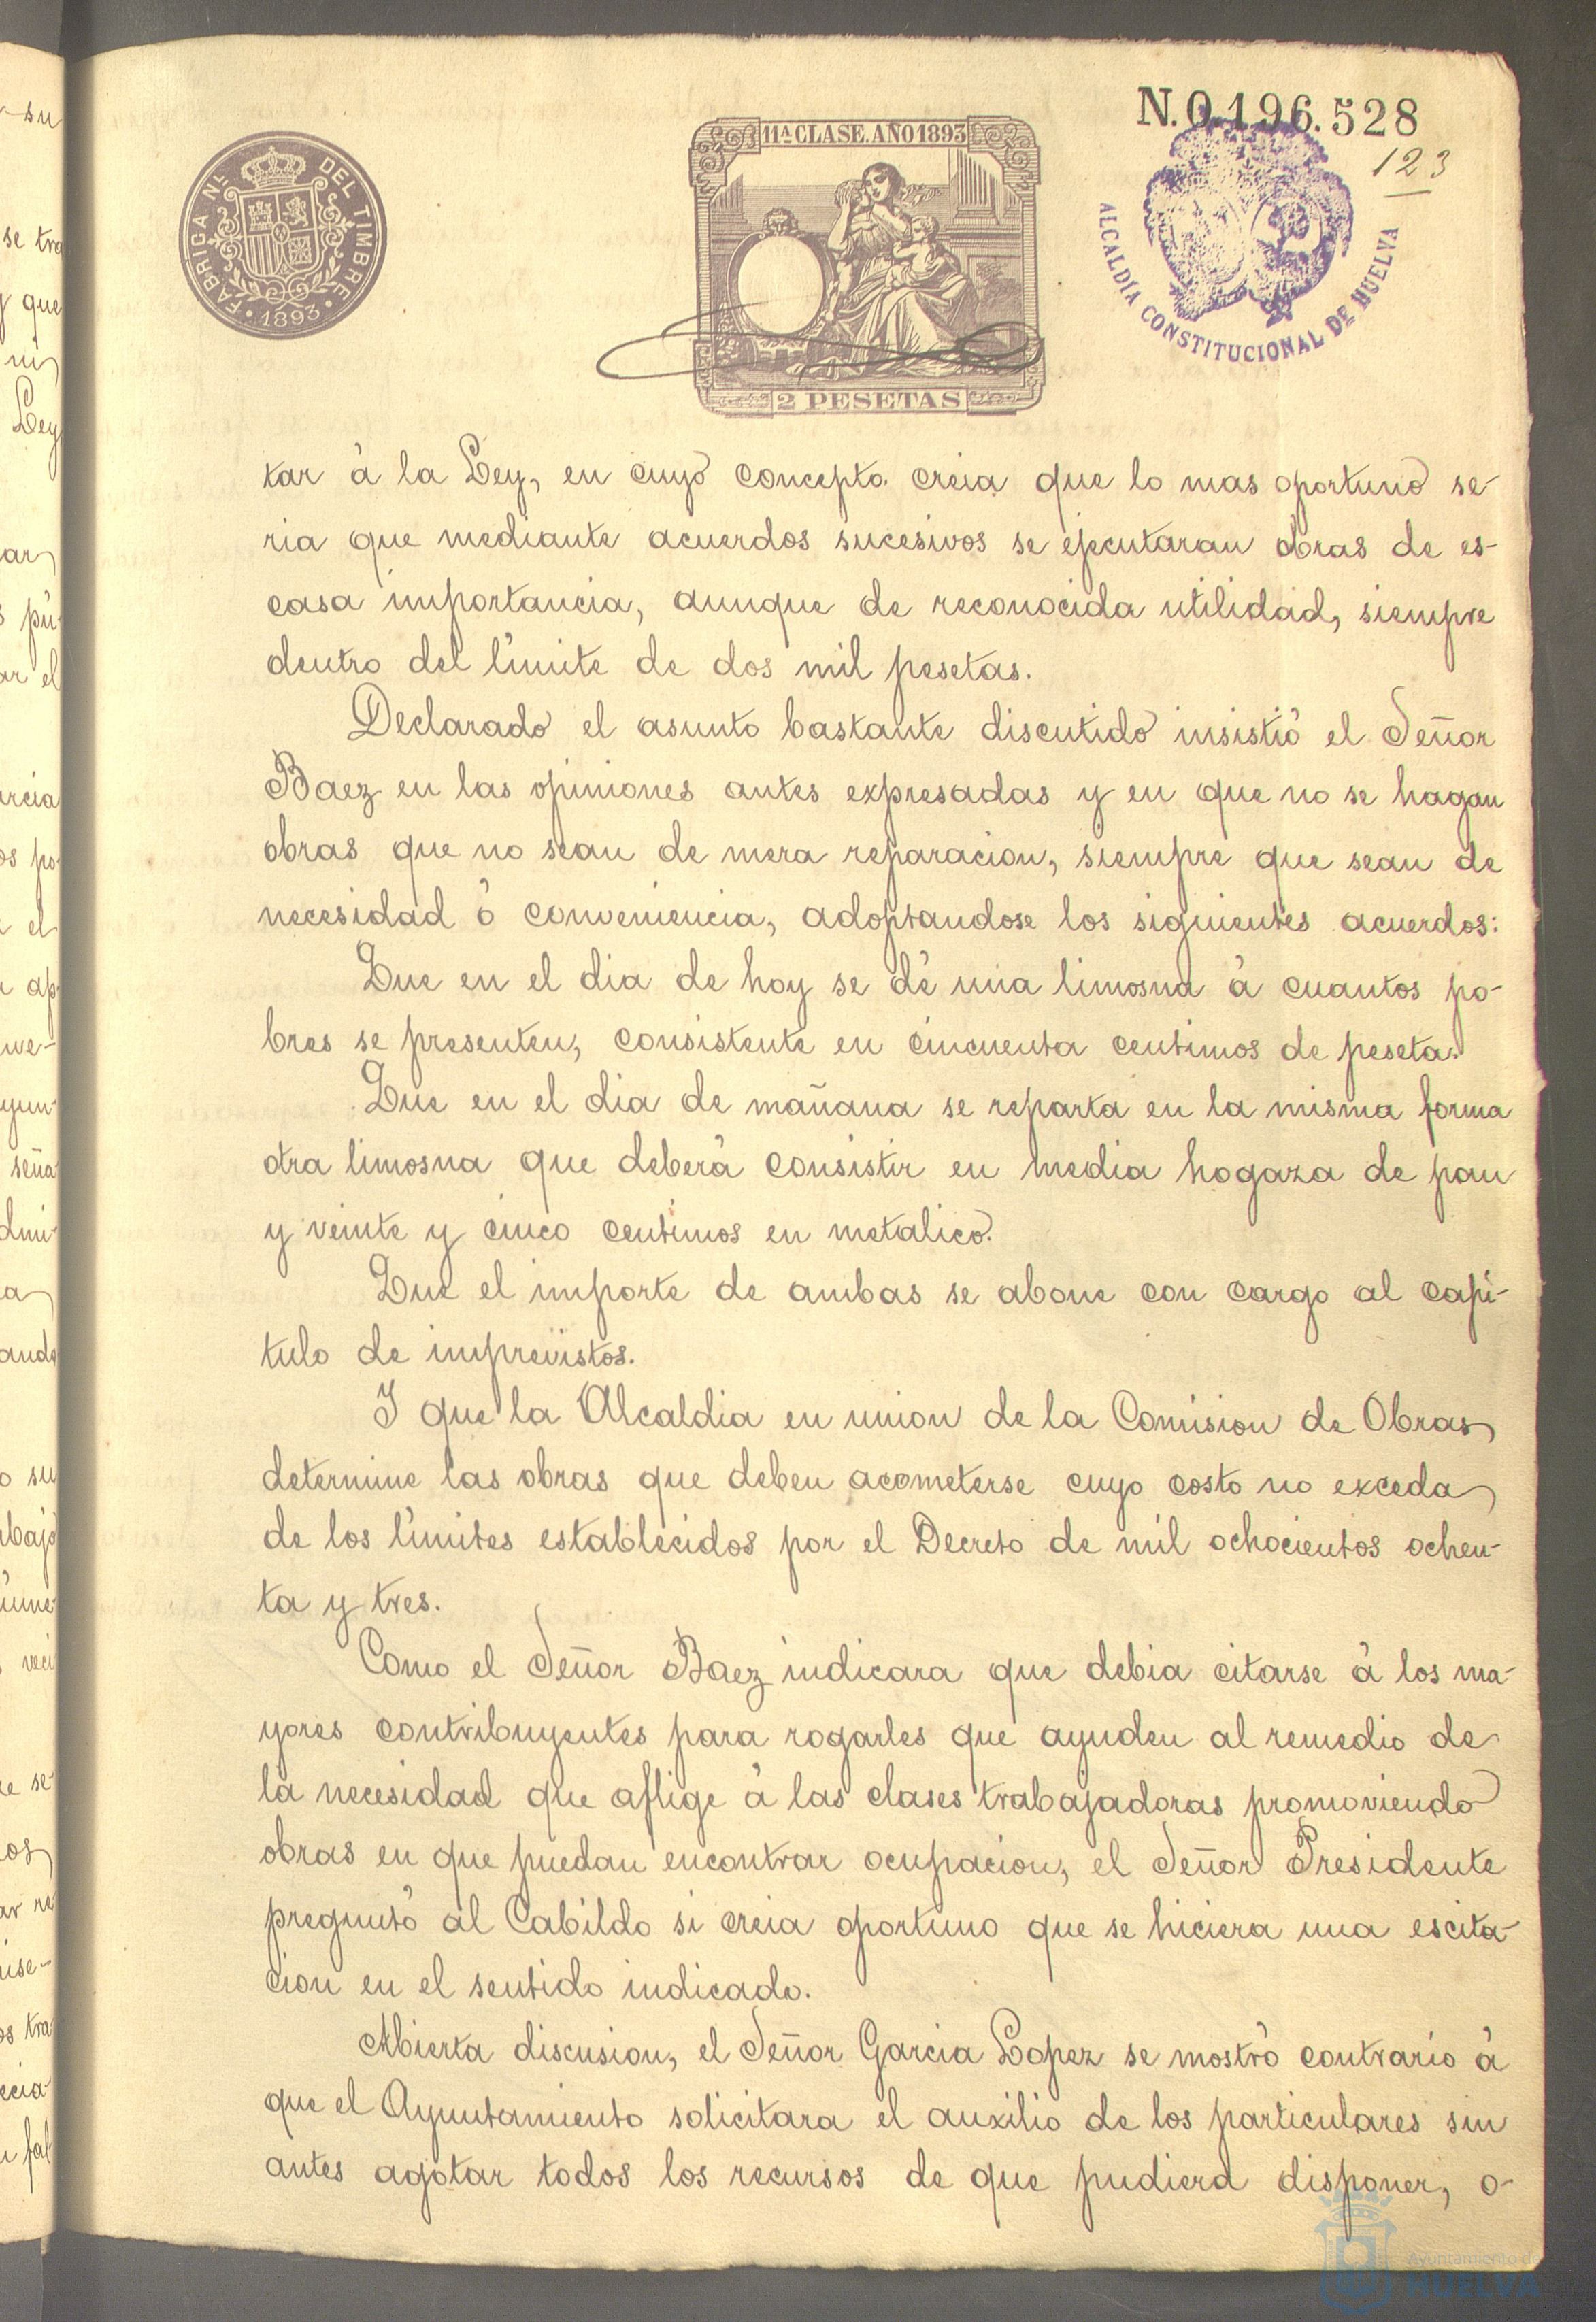 N.0.196.528
123
11ª CLASE. AÑO 1893
FABRICA Nª. DEL TIMBRE
1893
ALCALDÍA CONSTITUCIONAL DE HUELVA
2 PESETAS
tar á la Ley, en cuyo concepto creia que lo mas oportuno se-
ria que mediante acuerdos sucesivos se ejecutaran obras de es-
casa importancia, aunque de reconocida utilidad, siempre
dentro del límite de dos mil pesetas.
Declarado el asunto bastante discutido insistió el Señor
Baez en las opiniones antes expresadas y en que no se hagan
obras que no sean de mera reparacion, siempre que sean de
necesidad ó conveniencia, adoptandose los siguientes acuerdos:
Que en el dia de hoy se dé una limosna á cuantos po-
bres se presenten, consistente en cincuenta centimos de peseta.
Que en el dia de mañana se reparta en la misma forma
otra limosna que deberá consistir en media hogaza de pan
y veinte y cinco centimos en metalico.
Que el importe de ambas se abone con cargo al capí-
tulo de imprevistos.
Y que la Alcaldia en union de la Comision de Obras
determine las obras que deben acometerse cuyo costo no exceda
de los límites establecidos por el Decreto de mil ochocientos ochen-
ta y tres.
Como el Señor Baez indicara que debia citarse á los ma-
yores contribuyentes para rogarles que ayuden al remedio de
la necesidad que aflige á las clases trabajadoras promoviendo
obras en que puedan encontrar ocupacion, el Señor Presidente
preguntó al Cabildo si creia oportuno que se hiciera una escita-
cion en el sentido indicado.
Abierta discusion, el Señor Garcia Lopez se mostró contrario á
que el Ayuntamiento solicitara el auxilio de los particulares sin
antes agotar todos los recursos de que pudiera disponer, o-
Ayuntamiento de
HUELVA